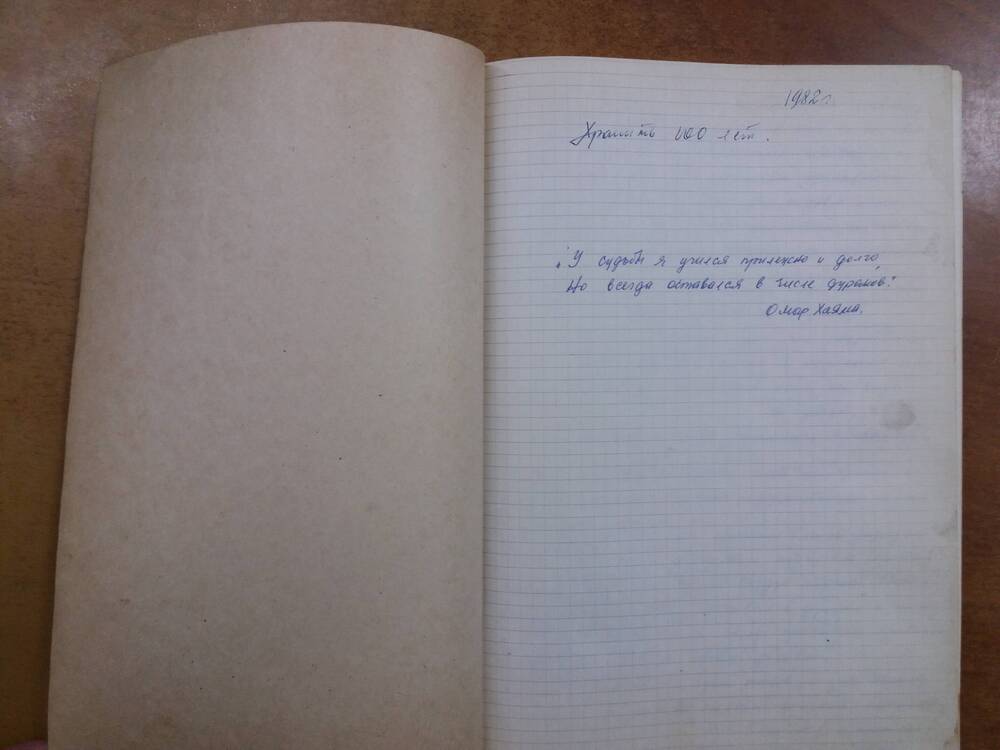 1982 г.
Хранить 100 лет.
„У судьбы я учился прилежно и долго,
Но всегда оставался в числе дураков."
Омар Хаяма.